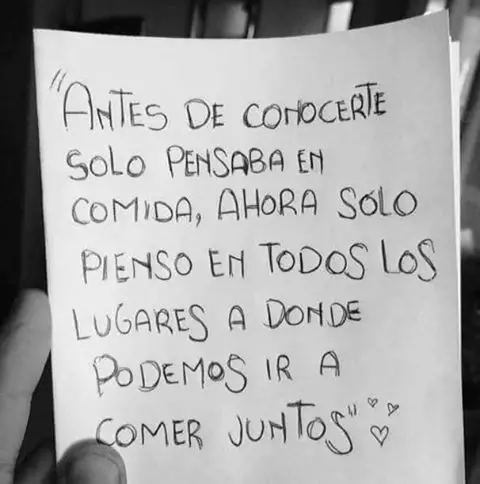 "ANTES DE CONOCERTE
SOLO PENSABA EN
COMIDA, AHORA SOLO
PIENSO EN TODOS LOS
LUGARES A DONDE
PODEMOS IR A
COMER JUNTOS"